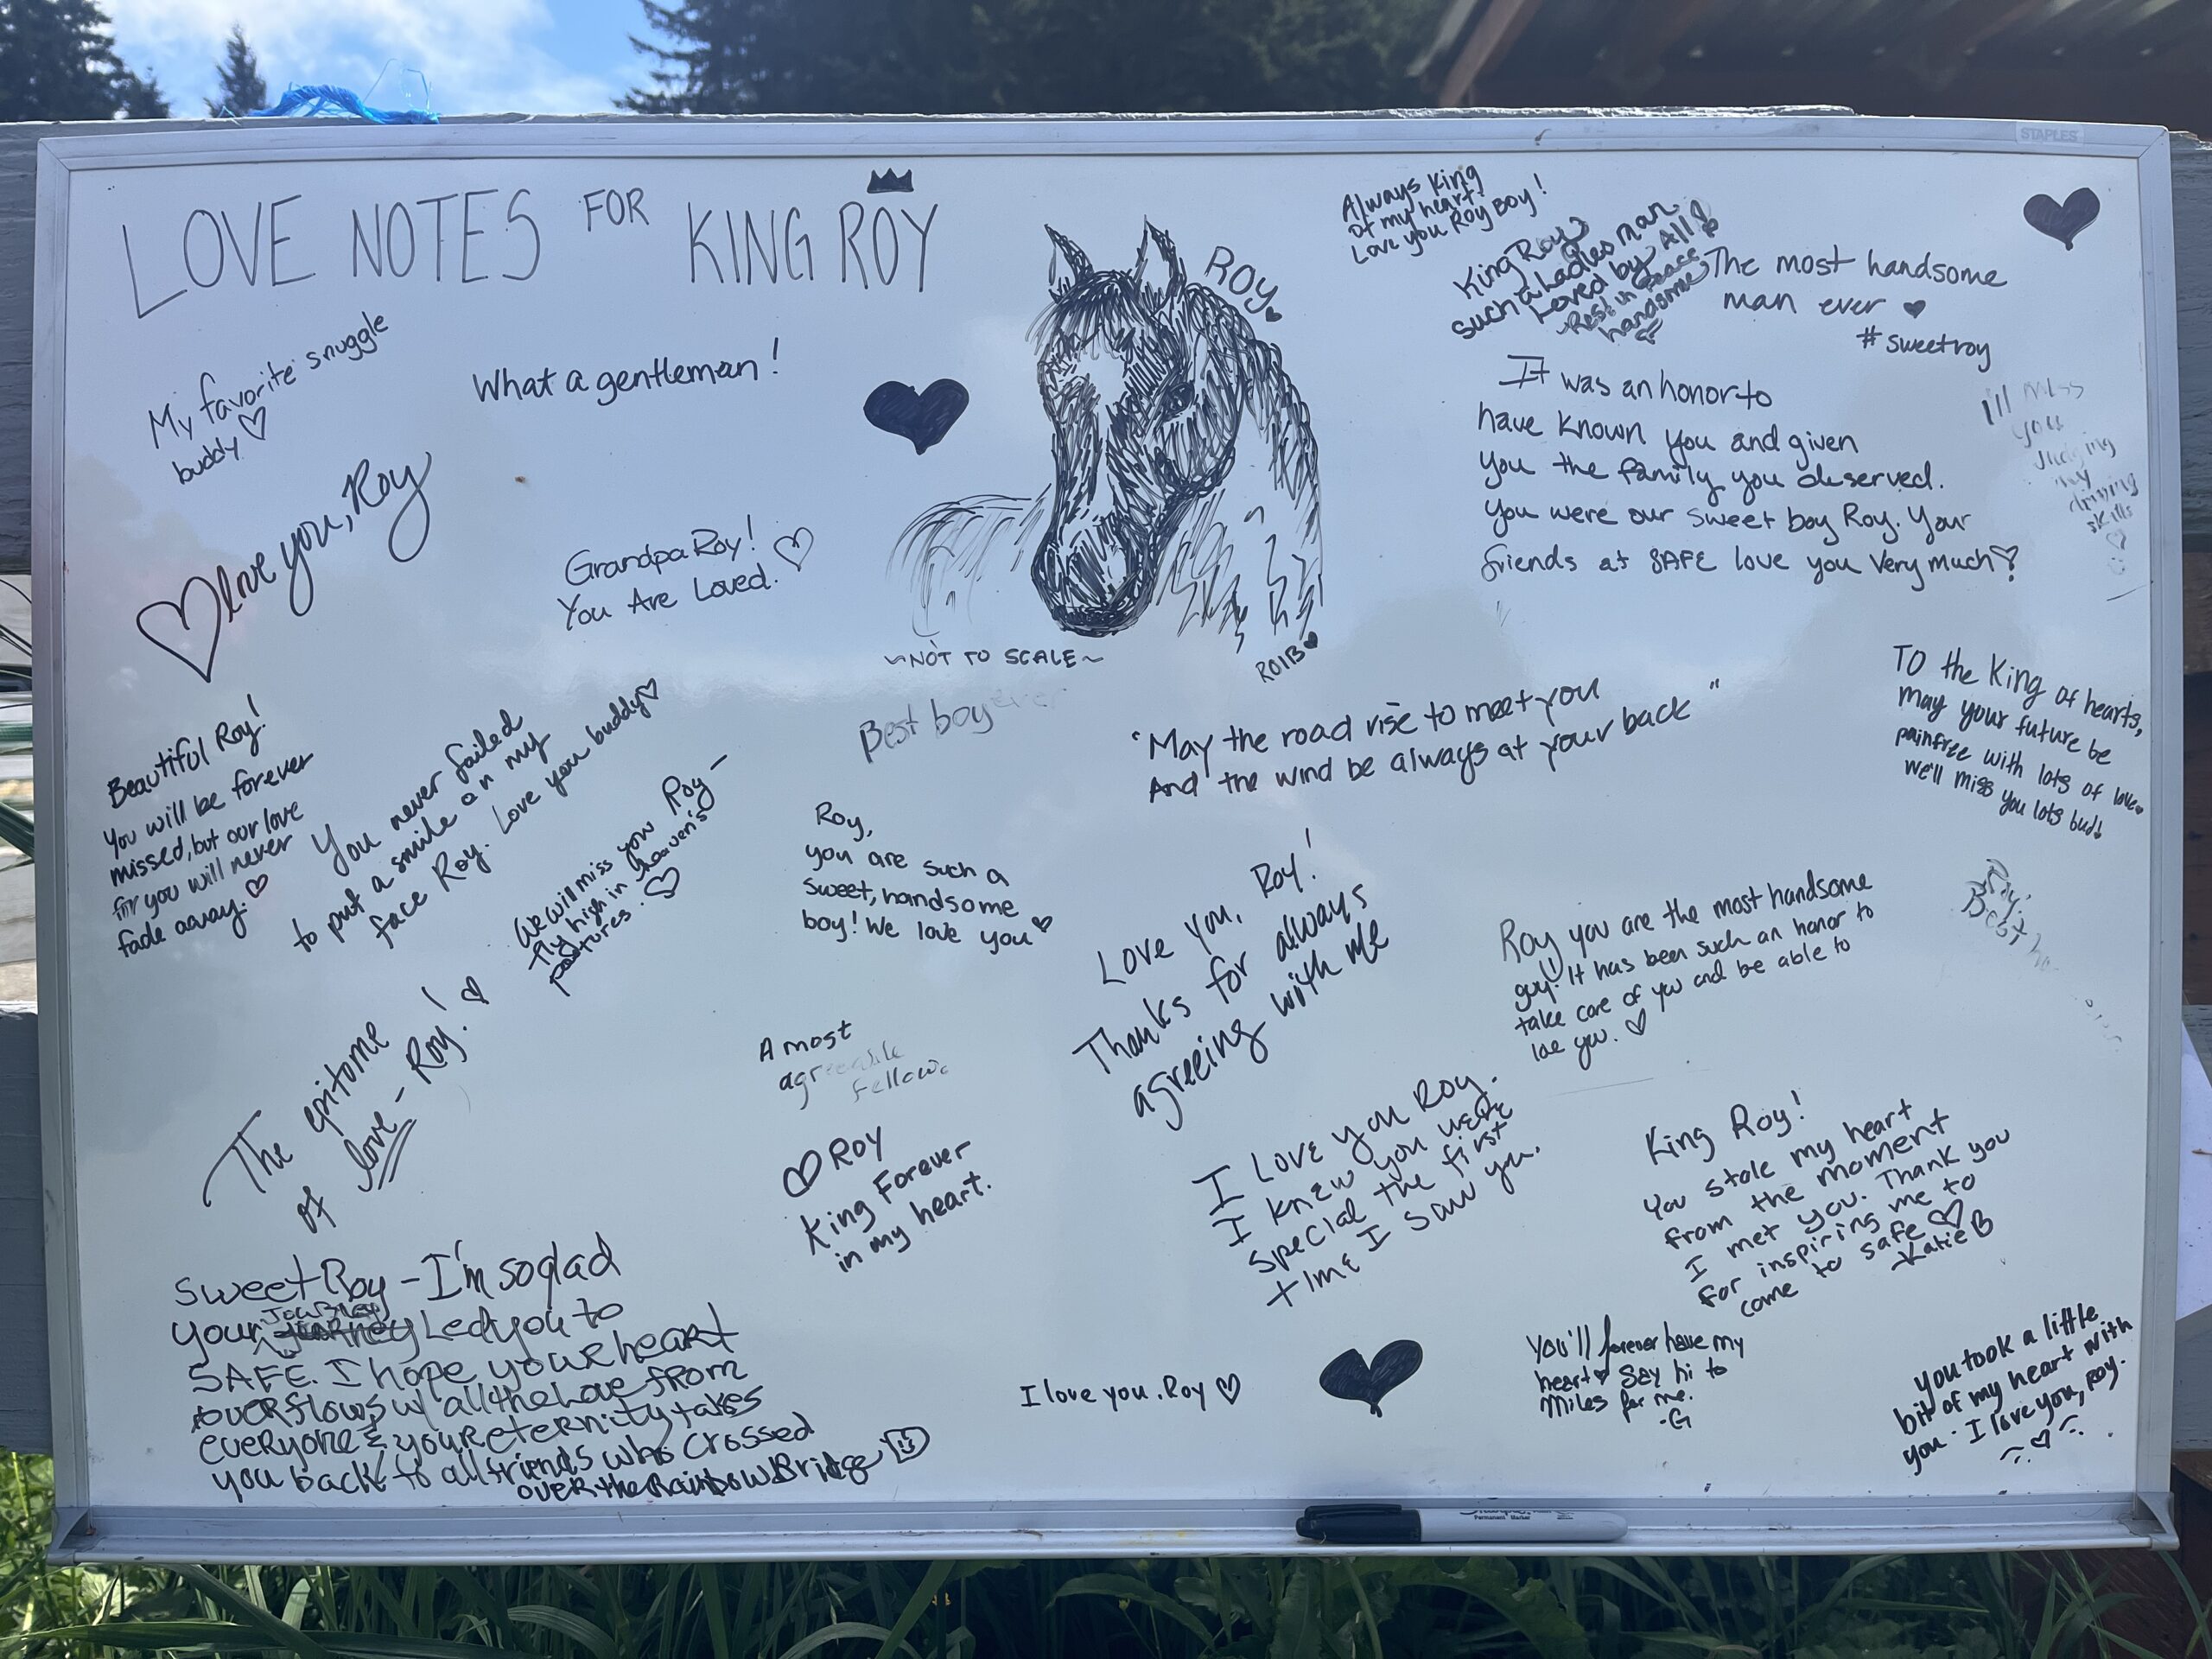 STAPLES
LOVE NOTES FOR KING ROY
My favorite snuggle
buddy ♡
What a gentleman!
♡ love you, Roy
Grandpa Roy!
You Are Loved. ♡
ROY
~NOT TO SCALE~
Always King
of my heart!
Love you Roy Boy!
King Roy
such a Ladies man
Loved by All!
Rest in Peace
handsome
The most handsome
man ever ♥
#sweetroy
It was an honor to
have known you and given
you the family you deserved.
You were our sweet boy Roy. Your
friends at SAFE love you very much ♡
I'll miss
you
Judging
my
driving
skills
♡
Best boy ever
"May the road rise to meet you
And the wind be always at your back"
TO the King of hearts,
may your future be
painfree with lots of love♥
we'll miss you lots bud!
Beautiful Roy!
You will be forever
missed, but our love
for you will never
fade away. ♡
You never failed
to put a smile on my
face Roy. Love you buddy ♡
We will miss you Roy -
fly high in heaven's
pastures. ♡
Roy,
you are such a
sweet, handsome
boy! We love you ♡
Love you, Roy!
Thanks for always
agreeing with me
Roy you are the most handsome
guy! It has been such an honor to
take care of you and be able to
love you. ♡
The epitome
of love - Roy! ♡
A most
agreeable
fellow.
♡ ROY
King Forever
in my heart.
I LOVE you Roy.
I knew you were
special the first
time I saw you.
King Roy!
You stole my heart
from the moment
I met you. Thank you
for inspiring me to
come to safe ♡
-Katie B
Sweet Roy - I'm so glad
your JOURNEY Led you to
SAFE. I hope your heart
overflows w/ all the Love from
everyone & your eternity takes
you back to all friends who crossed
over the Rainbow Bridge
I love you, Roy ♡
You'll forever have my
heart ♥ Say hi to
Miles for me.
-G
you took a little
bit of my heart with
you - I love you, Roy.
♡
Permanent Marker